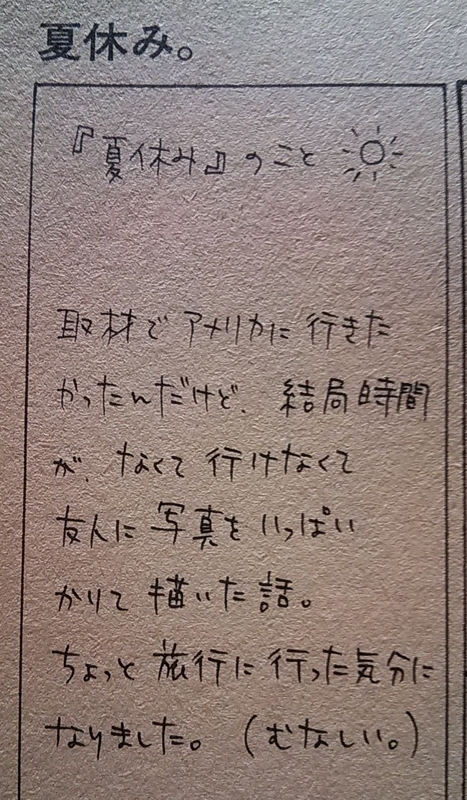 夏休み。
『夏休み』のこと
取材でアメリカに行きた
かったんだけど、結局時間
が、なくて行けなくて
友人に写真をいっぱい
かりて描いた話。
ちょっと旅行に行った気分に
なりました。(むなしい。)